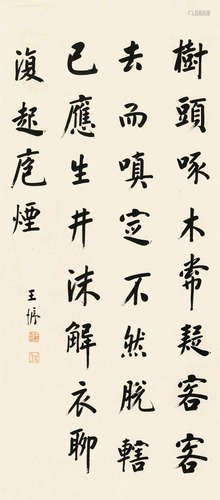 樹頭啄木常疑客客
去而嗔定不然脫轄
已應生井沫解衣聊
復起庖煙
王